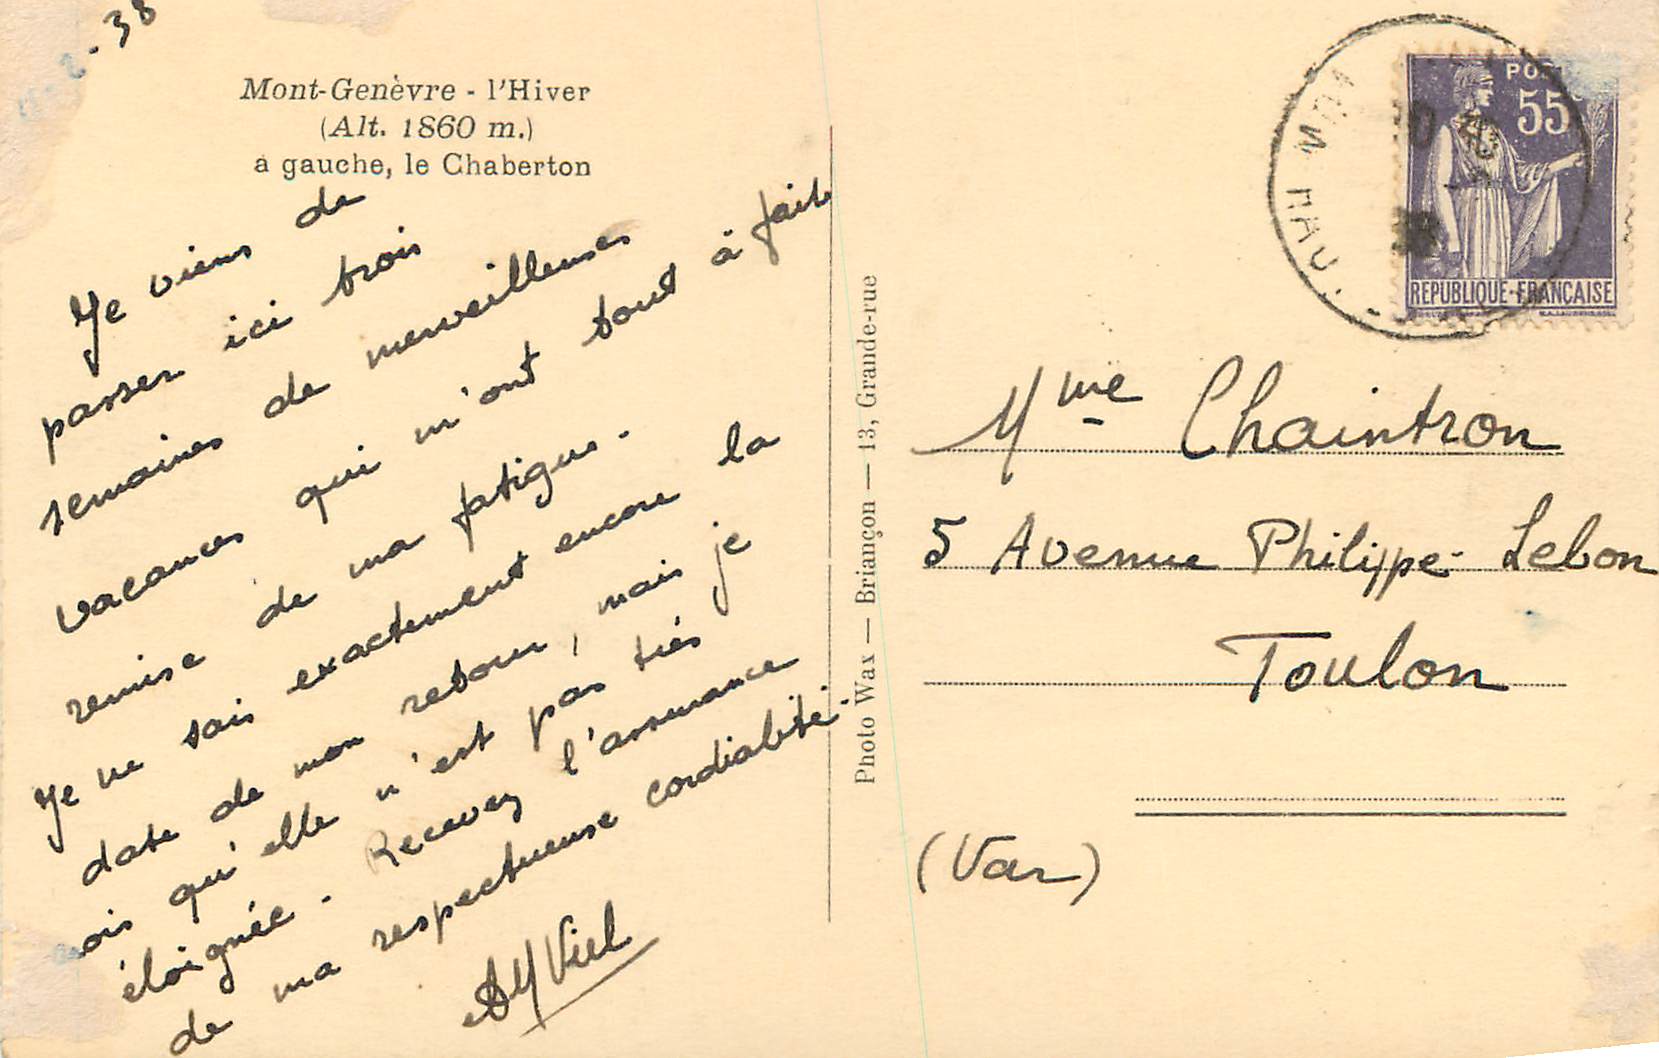 -38
Mont-Genèvre - l'Hiver
(Alt. 1860 m.)
à gauche, le Chaberton
Je viens de
passer ici trois
semaines de merveilleuses
vacances qui m'ont tout à fait
remise de ma fatigue.
Je ne sais exactement encore la
date de mon retour, mais je
crois qu'elle n'est pas très
éloignée. Recevez l'assurance
de ma respectueuse cordialité.
Viel
Photo Wax — Briançon — 13, Grande-rue
POSTES
55c
REPUBLIQUE-FRANÇAISE
Mme Chaintron
5 Avenue Philippe-Lebon
Toulon
(Var)